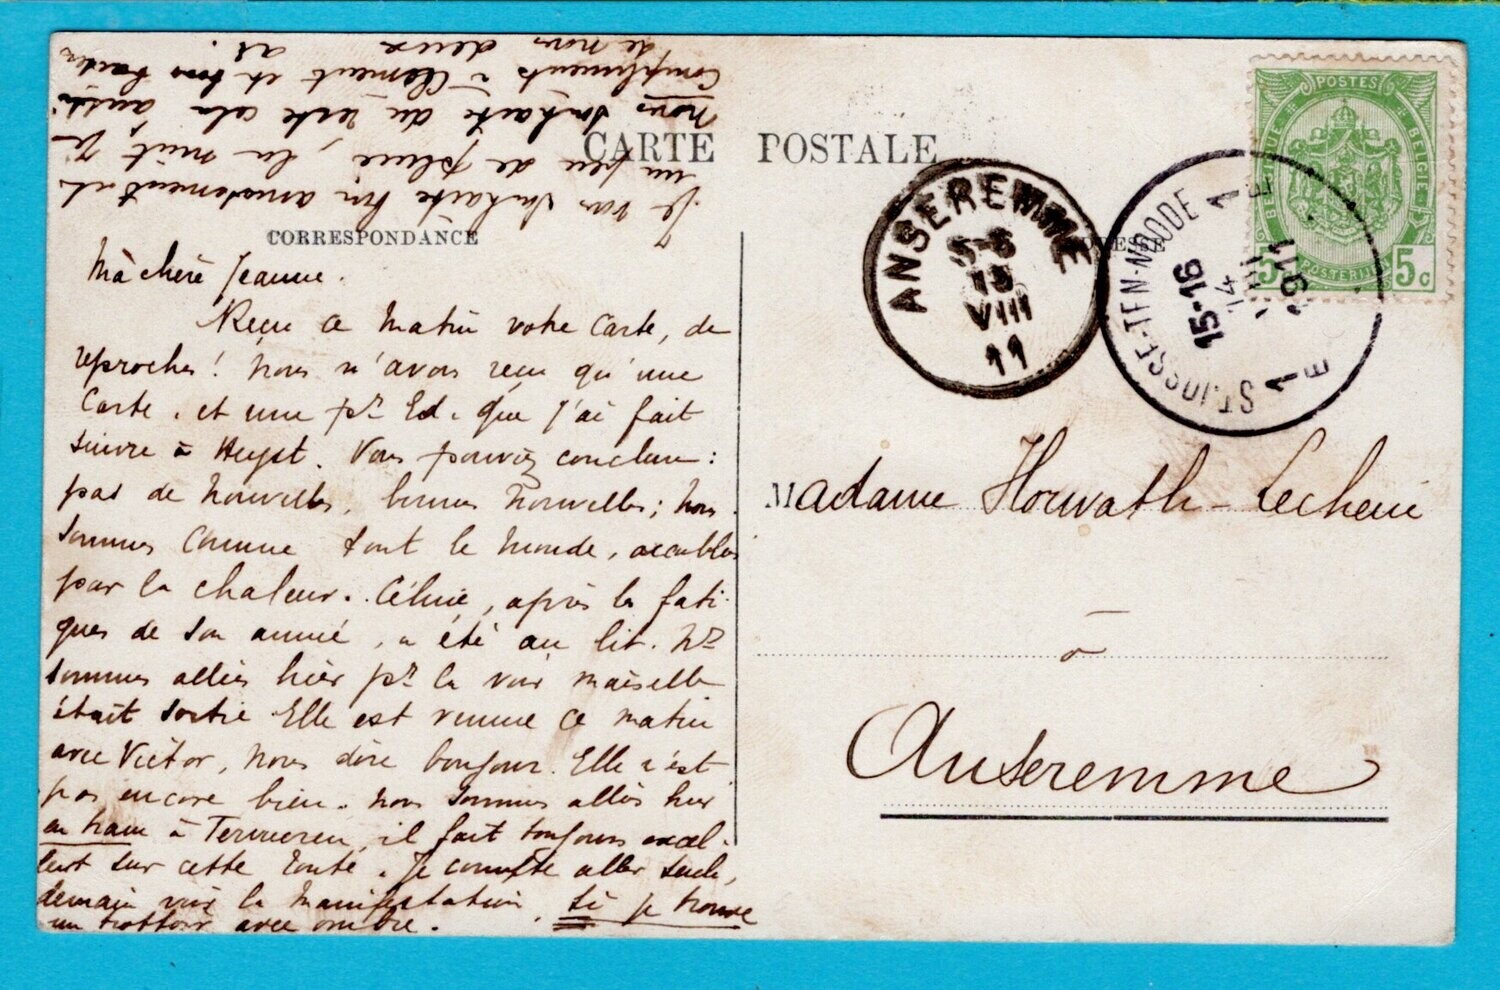 CARTE POSTALE
CORRESPONDANCE
Ma chère Jeanne.
Reçu ce matin votre carte, de
reproches! Nous n'avons reçu qu'une
Carte. et une pr Ed. que j'ai fait
suivre à Heyst. Vous pouviez conclure:
pas de nouvelles, bonnes nouvelles; nous
sommes comme tout le monde, accablés
par la chaleur. Céline, après les fati-
gues de son année, a été au lit. Ns
sommes allés hier pr la voir mais elle
était sortie Elle est venue ce matin
avec Victor, nous dire bonjour. Elle n'est
pas encore bien. nous sommes allés hier
en tram à Tervueren, il fait toujours excel-
lent sur cette route. Je compte aller seule,
demain voir la manifestation. si je trouve
un trottoir avec ombre.
Je vous souhaite bon amusement et
un peu de pluie, la nuit, Je
nous souhaite du reste cela aussi
Compliments à Clément et bons baisers
de nous deux
ANSEREMME
5-6
15
VIII
11
ST JOSSE-TEN-NOODE
1 E
15-16
14
VIII
1911
1 E
POSTES
BELGIQUE
BELGIË
POSTERIJEN
5 5c
Madame Horwath-Lechein
à
Anseremme